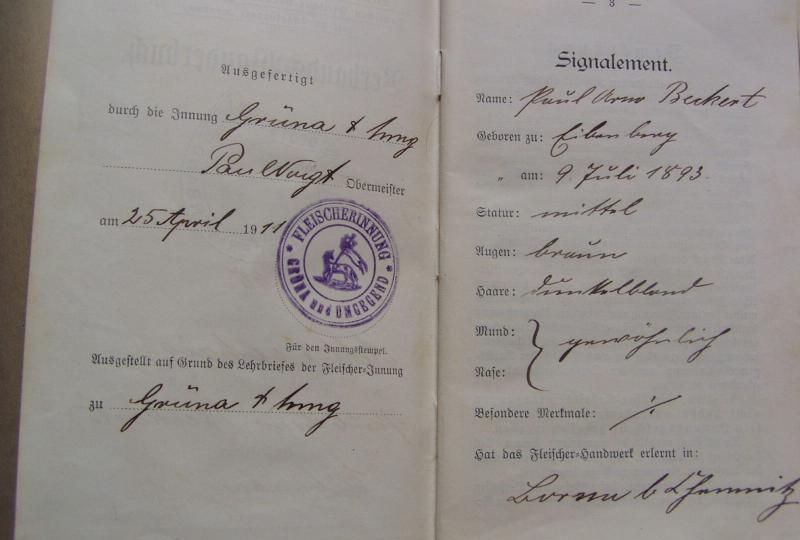 Ausgefertigt
durch die Innung Grüna & Umg
Paul Voigt Obermeister
am 25 April 1911
* FLEISCHERINNUNG *
GRÜNA und UMGEGEND
Für den Innungsstempel.
Ausgestellt auf Grund des Lehrbriefes der Fleischer-Innung
zu Grüna & Umg
— 3 —
Signalement.
Name: Paul Arno Beckert
Geboren zu: Eibenberg
„ am: 9. Juli 1893.
Statur: mittel
Augen: braun
Haare: dunkelblond
Mund:
Nase: } gewöhnlich
Besondere Merkmale: ·/.
Hat das Fleischer-Handwerk erlernt in:
Borna b Chemnitz